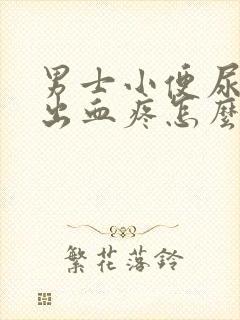 男士小便尿
出血疼怎麼
繁花落鈴